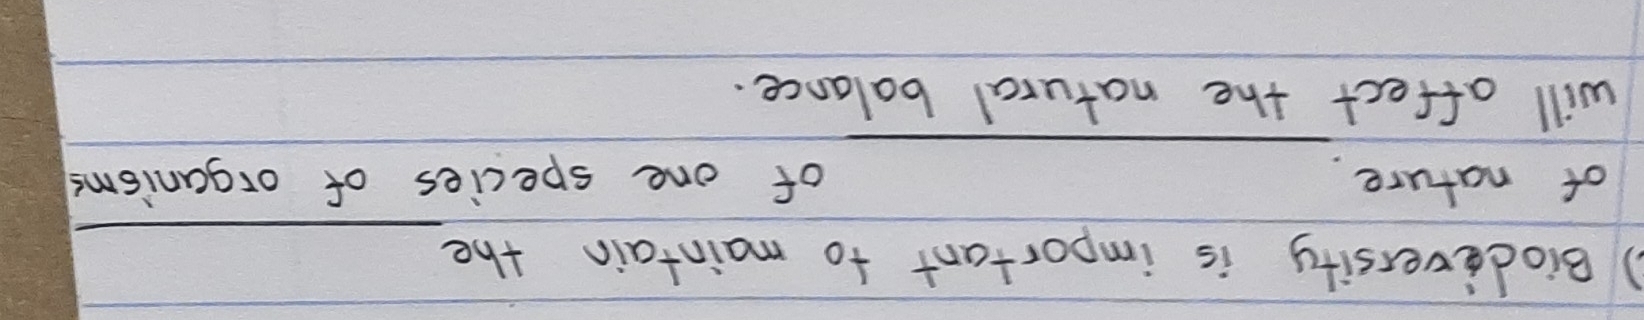 .) Biodiversity is important to maintain the ________
of nature. ________ of one species of organisms
will affect the natural balance.